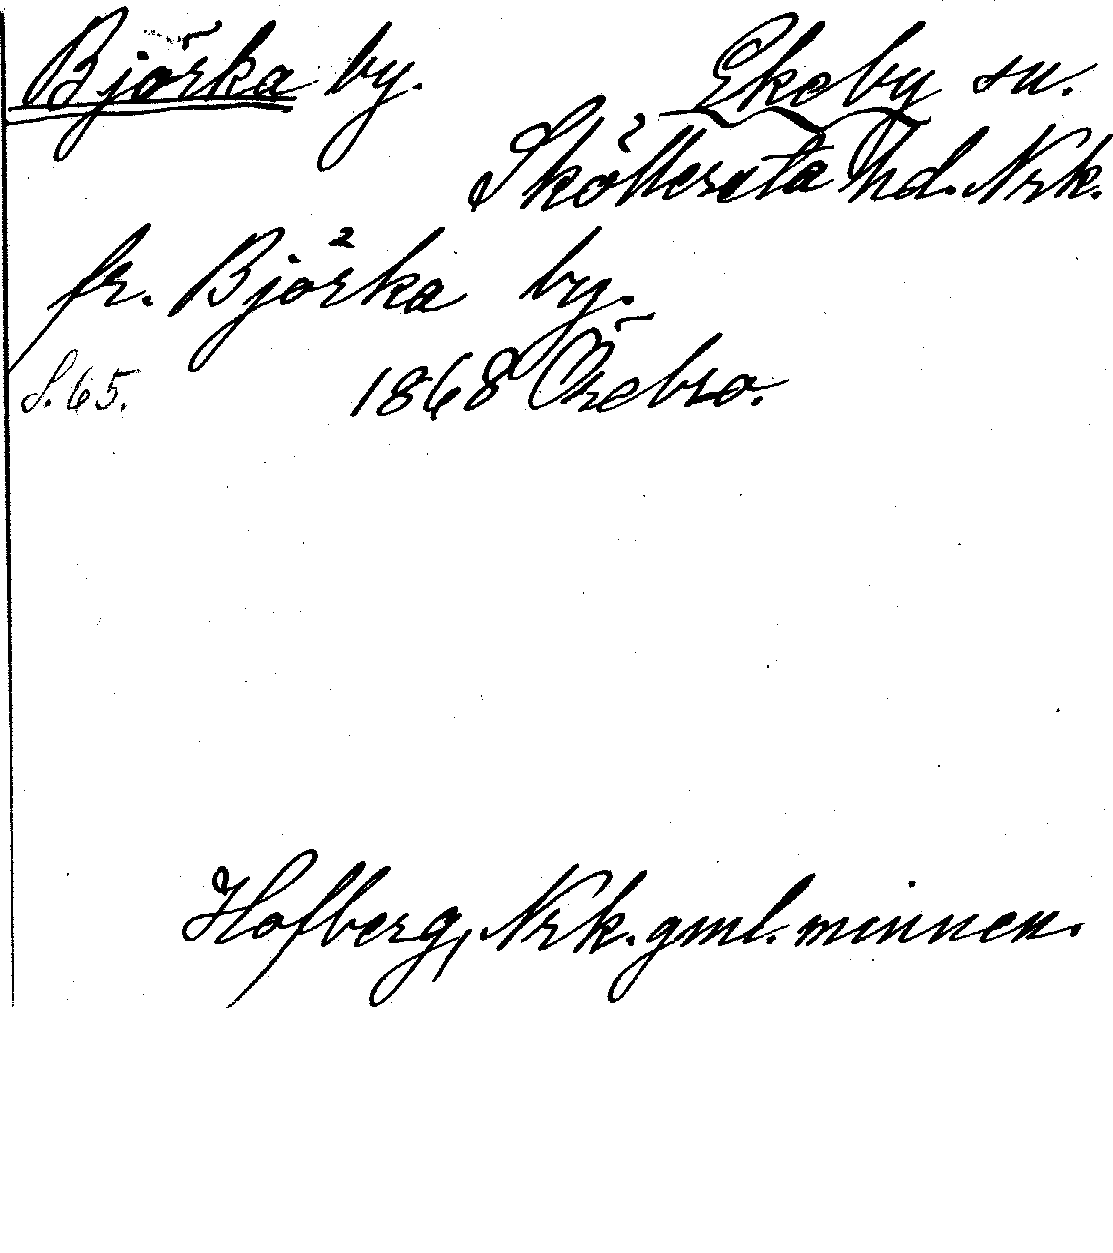 Björka by. Ekeby sn.
Sköllersta hd. Nrk.
fr. Björka by.
S. 65. 1868 Örebro.
Hofberg, Nrk. gml. minnen.